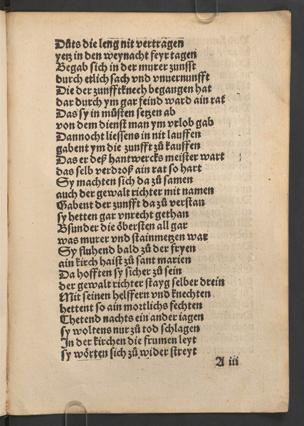 Düts die leng nit vertragen
yetz in den weynacht feyr tagen
Begab sich in der murer zunfft
durch etlich sach vnd vnuernunfft
Die der zunfftknech begangen hat
dar durch ym gar feind ward ain rat
Das sy in můsten setzen ab
von dem dienst man ym vrlob gab
Dannocht liessens in nit lauffen
gabent ym die zunfft zů kauffen
Das er deß hantwercks meister wart
das selb verdroß ain rat so hart
Sy machten sich da zů samen
auch der gewalt richter mit namen
Gabent der zunfft da zů verstan
sy hetten gar vnrecht gethan
Bsunder die öbersten all gar
was murer vnd stainmetzen war
Sy fluhend bald zů der fryen
ain kirch haißt zů sant marien
Da hofften sy sicher zů sein
der gewalt richter stayg selber drein
Mit seinen helffern vnd knechten
hettent so ain mortlichs fechten
Thetend nachts ein ander iagen
sy woltens nur zů tod schlagen
In der kirchen die frumen leyt
sy wörten sich zů wider streyt
A iii